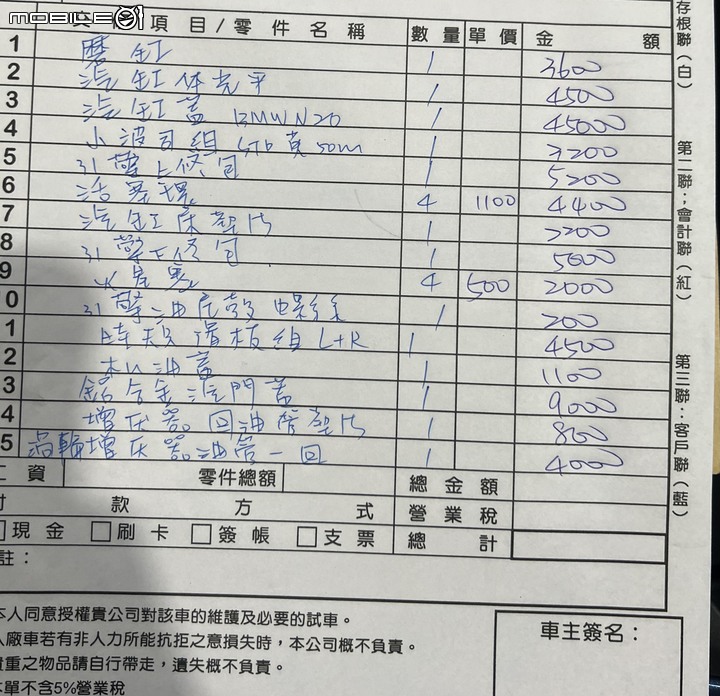 mobile01
項目/零件名稱 數量 單價 金額
1 磨缸 1 3600
2 汽缸体克平 1 4500
3 汽缸蓋 BMW N20 1 45000
4 小波司組 STD 1 3200
5 引擎上修包 1 5200
6 活塞環 4 1100 4400
7 汽缸床墊片 1 3200
8 引擎下修包 1 5600
9 火星塞 4 500 2000
0 引擎油底殼螺絲 1 200
1 時規滑板組 L+R 1 4500
2 机油蓋 1 1100
3 鋁合金汽門蓋 1 9000
4 增压器回油管墊片 1 800
5 渦輪增压器油管一回 1 4000
工資 零件總額 總金額
付款方式 營業稅
現金 刷卡 簽帳 支票 總計
註：
本人同意授權貴公司對該車的維護及必要的試車。
入廠車若有非人力所能抗拒之意損失時，本公司概不負責。
貴重之物品請自行帶走，遺失概不負責。
本單不含5%營業稅
車主簽名：
存根聯（白）
第二聯：會計聯（紅）
第三聯：客戶聯（藍）